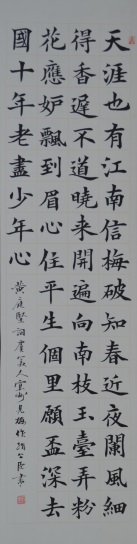 天涯也有江南信梅破知春近夜闌風細
得香遲不道曉來開遍向南枝玉臺弄粉
花應妒飄到眉心住平生個里願盃深去
國十年老盡少年心
黃庭堅詞虞美人宜州見梅作